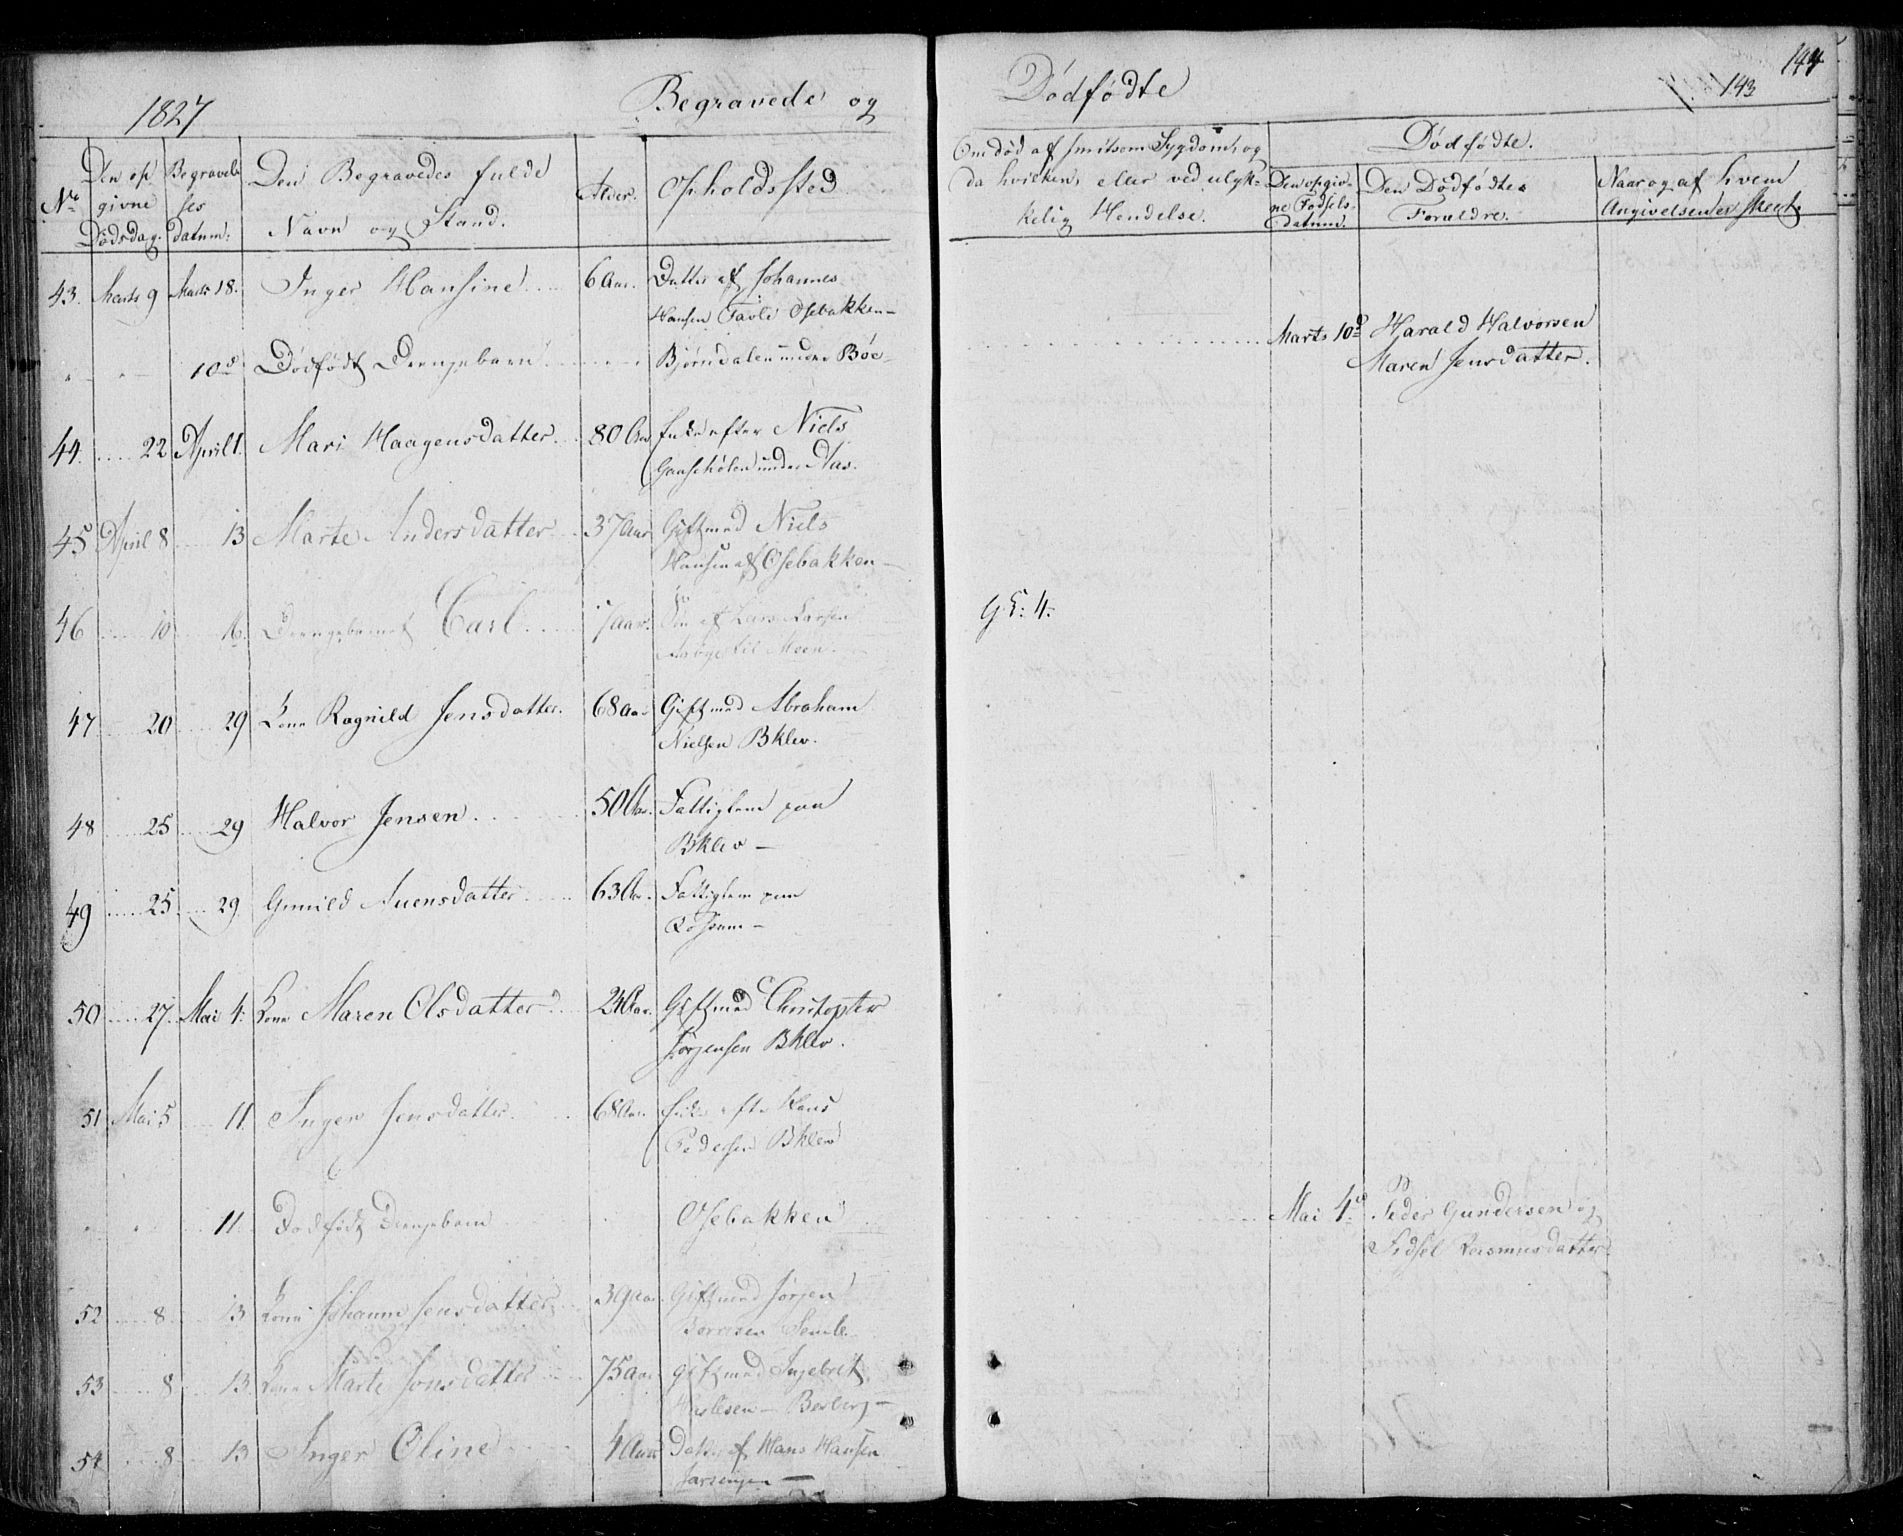 1827
Begravede og
Dødfødte
144
143
No
Den op
givne
Dødsdag.
Begravel
ses
datum:
Den Begravedes fulde
Navn og Stand.
Alder.
Opholdssted
Om død af smitsom Sygdom, og
da hvilken, eller ved ulyk-
kelig Hendelse.
Dødfødte.
Den opgiv-
ne Fødsels-
datum.
Den Dødfødtes
Foreldre.
Naar og af hvem
Angivelsen er skeet.
43. Marts 9 Marts 18. Inger Hansine 6 Aar. Datter af Johannes
Hansen Osebakken
10d Dødfødt Drengebarn Bjørndalen under Böe
Marts 10d Harald Halvorsen
Maren Jensdatter.
44. 22 April 1. Mari Haagensdatter 80 Aar Enke efter Niels
under Aas.
45 April 8 13 Marte Andersdatter 37 Aar Gift med Niels
Hansen af Osebakken
46 10 16. Drengebarnet Carl 7 Aar. Søn af Lars Larsen
til Meen.
G. E: 4.
47 20 29 Kone Ragnild Jensdatter. 68 Aar Gift med Abraham
Nielsen Bklev.
48 25 29 Halvor Jensen 50 Aar. Fattiglem paa
Bklev
49 25 29 Gunild Auensdatter 63 Aar. Fattiglem paa
50 27. Mai 4. Kone Maren Olsdatter 24 Aar. Gift med Christopher
Jørgensen Bklev.
51 Mai 5 11. Inger Jensdatter 68 Aar. Enke efter Hans
Pedersen Bklev
11. Dødfødt Drengebarn Osebakken
Mai 4d Peder Gundersen og
Rasmusdatter
52 8 13 Kone Johanne Jensdatter 39 Aar Gift med Jørgen
53 8 13 Kone Marte Jonsdatter 75 Aar Gift med Ingebret
54 8 13 Inger Oline 4 Aar Datter af Hans Hansen